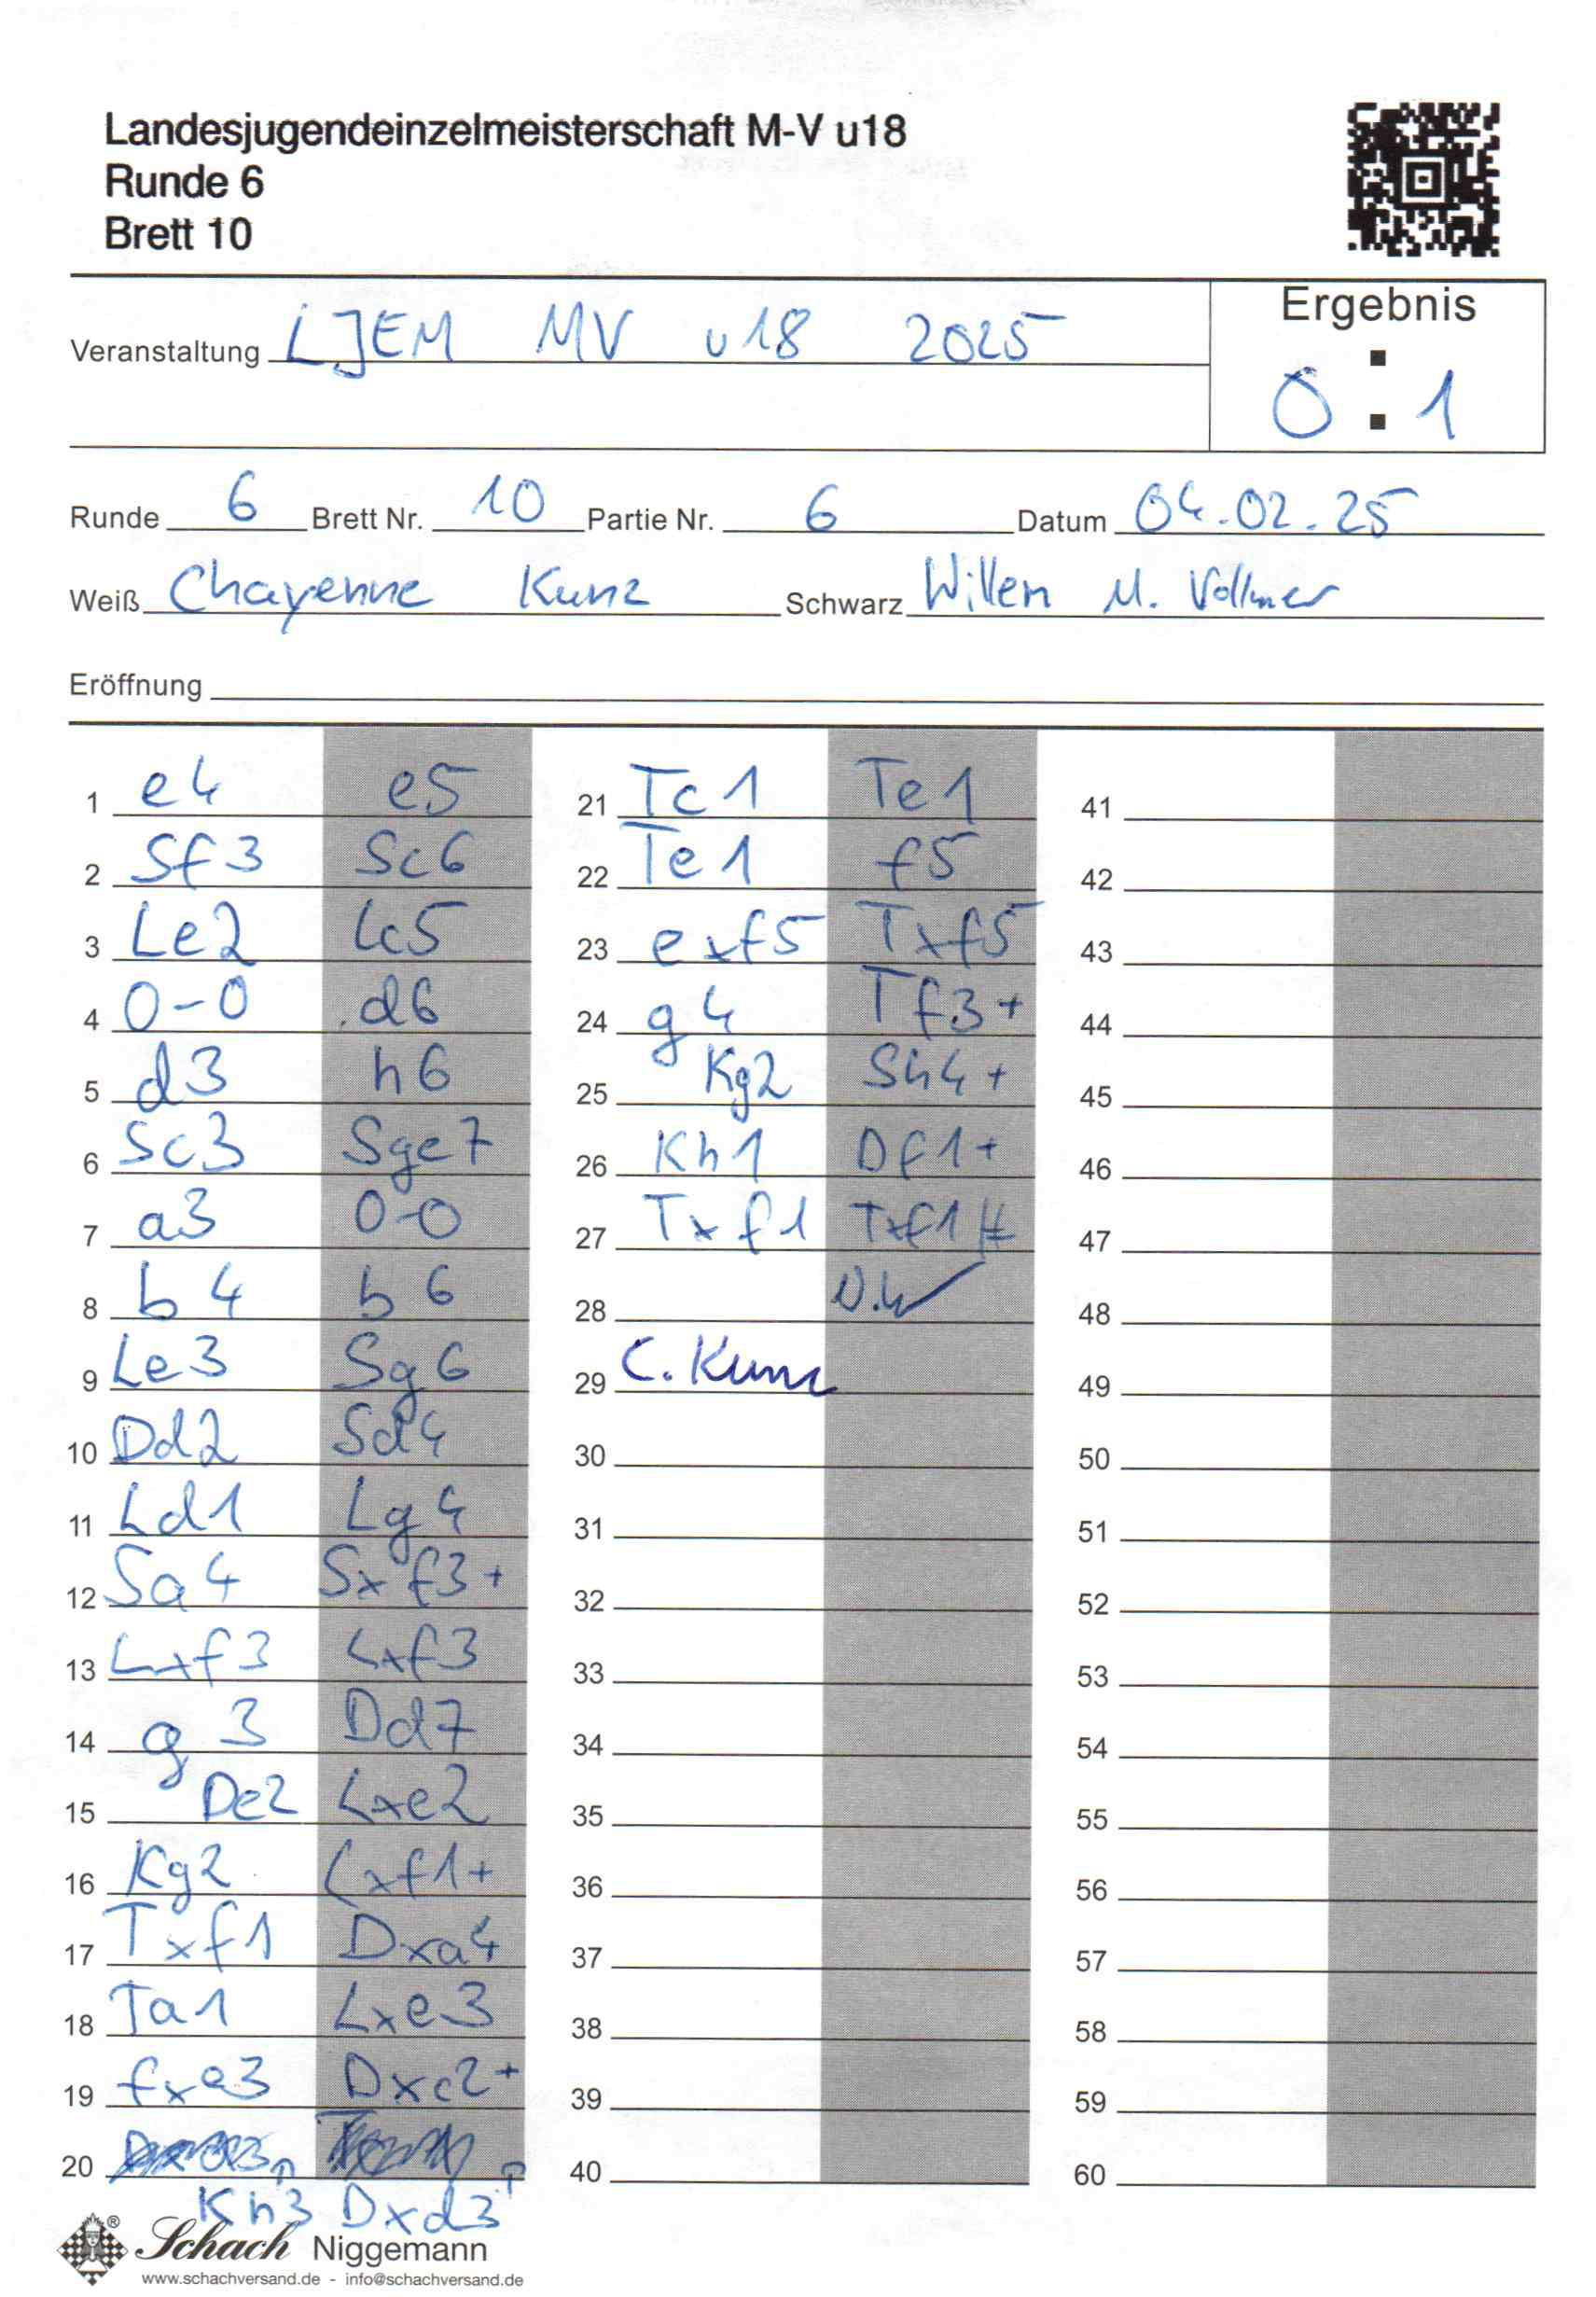 Landesjugendeinzelmeisterschaft M-V u18
Runde 6
Brett 10
Ergebnis
Veranstaltung LJEM MV u18 2025
0 : 1
Runde 6 Brett Nr. 10 Partie Nr. 6 Datum 04.02.25
Weiß Chayenne Kunz Schwarz Willem M. Vollmer
Eröffnung
1 e4 e5
2 Sf3 Sc6
3 Le2 Lc5
4 0-0 d6
5 d3 h6
6 Sc3 Sge7
7 a3 0-0
8 b4 b6
9 Le3 Sg6
10 Dd2 Sd4
11 Ld1 Lg4
12 Sa4 Sxf3+
13 Lxf3 Lxf3
14 g3 Dd7
15 De2 Lxe2
16 Kg2 Lxf1+
17 Txf1 Dxa4
18 Ta1 Lxe3
19 fxe3 Dxc2+
20
Kh3 Dxd3
21 Tc1 Te1
22 Te1 f5
23 exf5 Txf5
24 g4 Tf3+
25 Kg2 Sh4+
26 Kh1 Df1+
27 Txf1 Txf1#
28
29 C. Kunz
30
31
32
33
34
35
36
37
38
39
40
41
42
43
44
45
46
47
48
49
50
51
52
53
54
55
56
57
58
59
60
Schach Niggemann
www.schachversand.de - info@schachversand.de